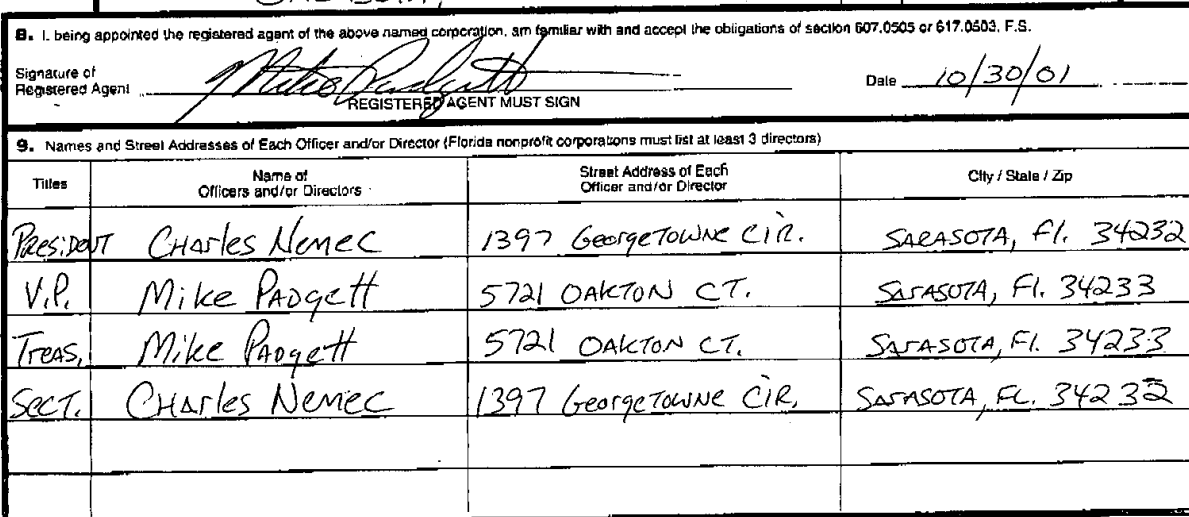 8. I, being appointed the registered agent of the above named corporation, am familiar with and accept the obligations of section 607.0505 or 617.0503, F.S.
Signature of
Registered Agent Mike Padgett Date 10/30/01
REGISTERED AGENT MUST SIGN
9. Names and Street Addresses of Each Officer and/or Director (Florida nonprofit corporations must list at least 3 directors)
Titles Name of Officers and/or Directors Street Address of Each Officer and/or Director City / State / Zip
President Charles Nemec 1397 Georgetowne Cir. Sarasota, Fl. 34232
V.P. Mike Padgett 5721 Oakton Ct. Sarasota, Fl. 34233
Treas. Mike Padgett 5721 Oakton Ct. Sarasota, Fl. 34233
Sect. Charles Nemec 1397 Georgetowne Cir. Sarasota, FL. 34232